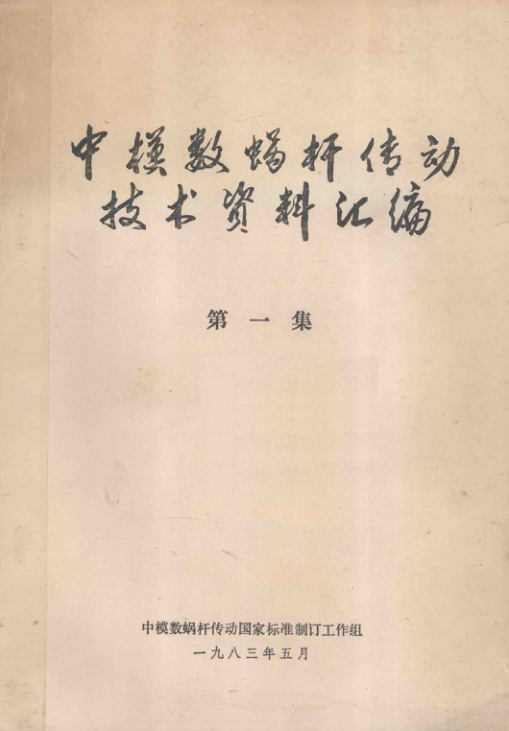 中模数蜗杆传动
技术資料汇编
第一集
中模数蜗杆传动国家标准制订工作组
一九八三年五月